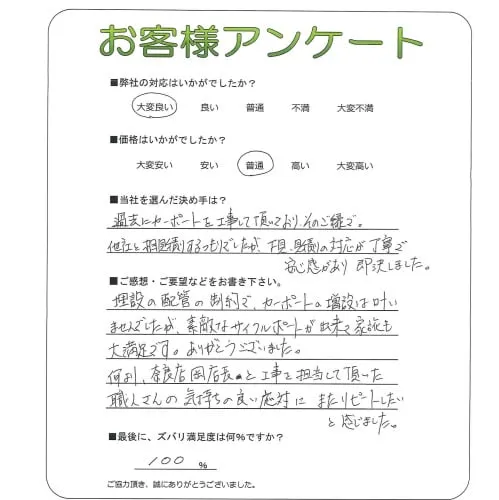 お客様アンケート
■弊社の対応はいかがでしたか？
大変良い 良い 普通 不満 大変不満
■価格はいかがでしたか？
大変安い 安い 普通 高い 大変高い
■当社を選んだ決め手は？
過去にカーポートを工事して頂いており、そのご縁で。
他社と相見積りするつもりでしたが、下見、見積りの対応が丁寧で
安心感があり 即決しました。
■ご感想・ご要望などをお書き下さい。
埋設の配管の制約で、カーポートの増設は叶い
ませんでしたが、素敵なサイクルポートが出来て家族も
大満足です。ありがとうございました。
何より、奈良店 岡店長と工事を担当して頂いた
職人さんの気持ちの良い応対に またリピートしたい
と感じました。
■最後に、ズバリ満足度は何％ですか？
100 ％
ご協力頂き、誠にありがとうございました。